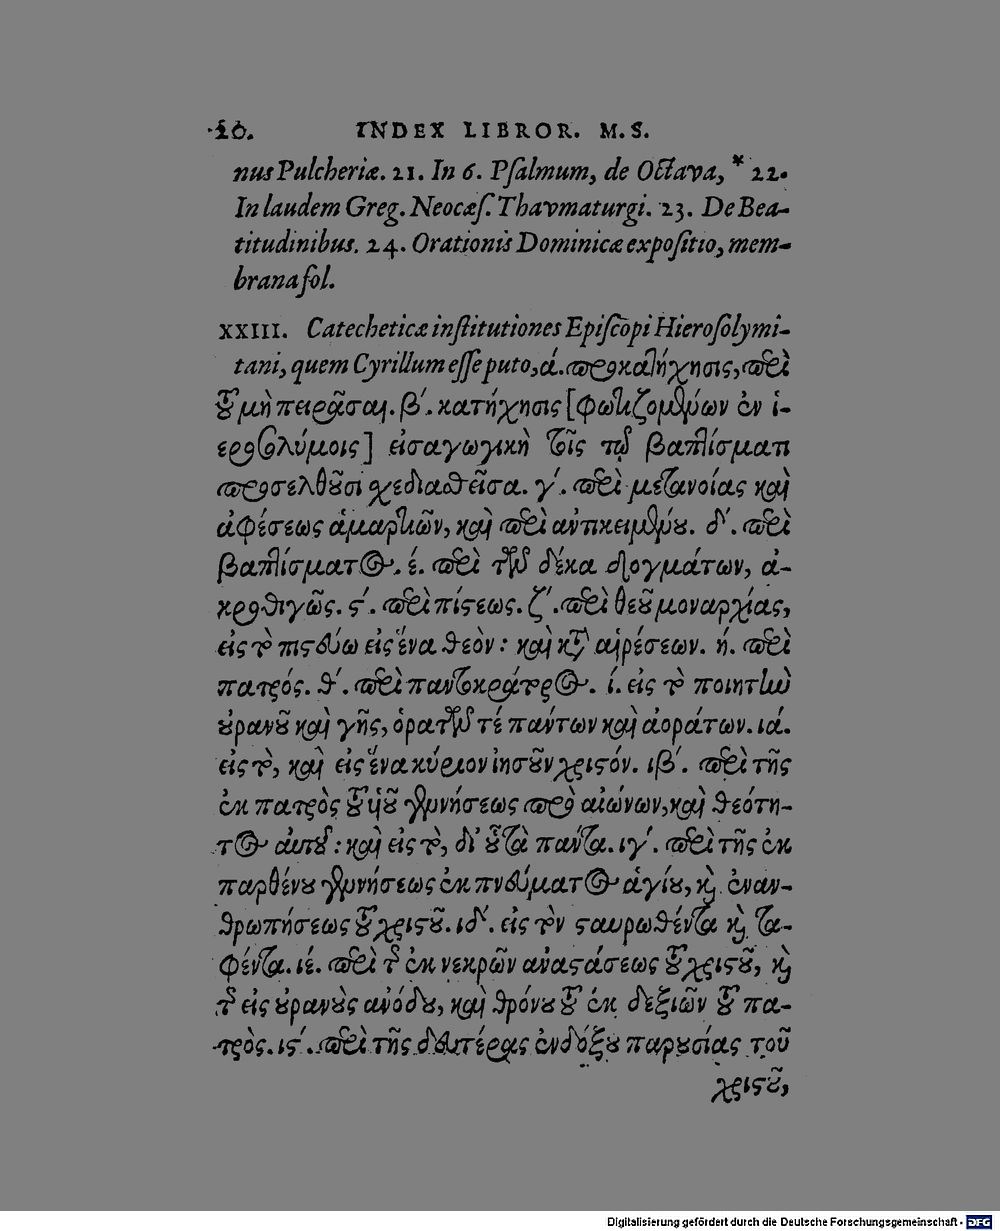 20. INDEX LIBROR. M. S.
nus Pulcheriæ. 21. In 6. Pſalmum, de Octava, * 22.
In laudem Greg. Neocæſ. Thavmaturgi. 23. De Bea-
titudinibus. 24. Orationis Dominicæ expoſitio, mem-
brana fol.
XXIII. Catecheticæ inſtitutiones Epiſcopi Hieroſolymi-
tani, quem Cyrillum eſſe puto, ά. προκατήχησις, περὶ
τοῦ μὴ πειρᾶσαι. β΄. κατήχησις [φωτιζομένων ἐν ἱ-
εροσολύμοις] εἰσαγωγικὴ τοῖς τῷ βαπτίσματι
προσελθοῦσι σχεδιαθεῖσα. γ΄. περὶ μετανοίας καὶ
ἀφέσεως ἁμαρτιῶν, καὶ περὶ αντικειμένου. δ΄. περὶ
βαπτίσματος. έ. περὶ τῶν δέκα δογμάτων, ἀ-
κροθιγῶς. ς΄. περὶ πίστεως. ζ΄. περὶ θεοῦ μοναρχίας,
εἰς τὸ πιστεύω εἰς ἕνα θεὸν: καὶ κατὰ αἱρέσεων. ή. περὶ
πατρός. θ΄. περὶ παντοκράτορος. ί. εἰς τὸ ποιητὴν
οὐρανοῦ καὶ γῆς, ὁρατῶν τέ πάντων καὶ ἀοράτων. ιά.
εἰς τὸ, καὶ εἰς ἕνα κύριον ἰησοῦν χριστόν. ιβ΄. περὶ τῆς
ἐκ πατρὸς τοῦ υἱοῦ γεννήσεως πρὸ αἰώνων, καὶ θεότη-
τος αὐτοῦ: καὶ εἰς τὸ, δι' οὗ τὰ πάντα. ιγ΄. περὶ τῆς ἐκ
παρθένου γεννήσεως ἐκ πνεύματος ἁγίου, καὶ ἐναν-
θρωπήσεως τοῦ χριστοῦ. ιδ΄. εἰς τὸν σταυρωθέντα καὶ τα-
φέντα. ιέ. περὶ τῆς ἐκ νεκρῶν αναστάσεως τοῦ χριστοῦ, καὶ
τῆς εἰς οὐρανοὺς ανόδου, καὶ θρόνου τοῦ ἐκ δεξιῶν τοῦ πα-
τρὸς. ις΄. περὶ τῆς δευτέρας ἐνδόξου παρουσίας τοῦ
χριστοῦ,
Digitalisierung gefördert durch die Deutsche Forschungsgemeinschaft - DFG